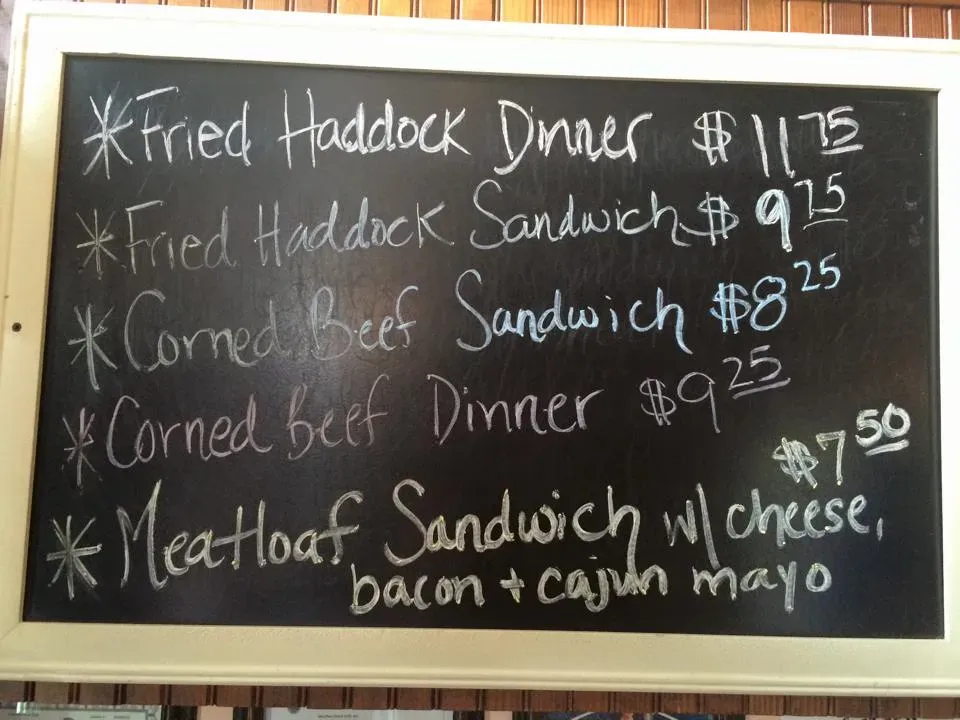 *Fried Haddock Dinner $11 75
*Fried Haddock Sandwich $9 75
*Corned Beef Sandwich $8 25
*Corned Beef Dinner $9 25
$7 50
*Meatloaf Sandwich w/ cheese,
bacon + cajun mayo